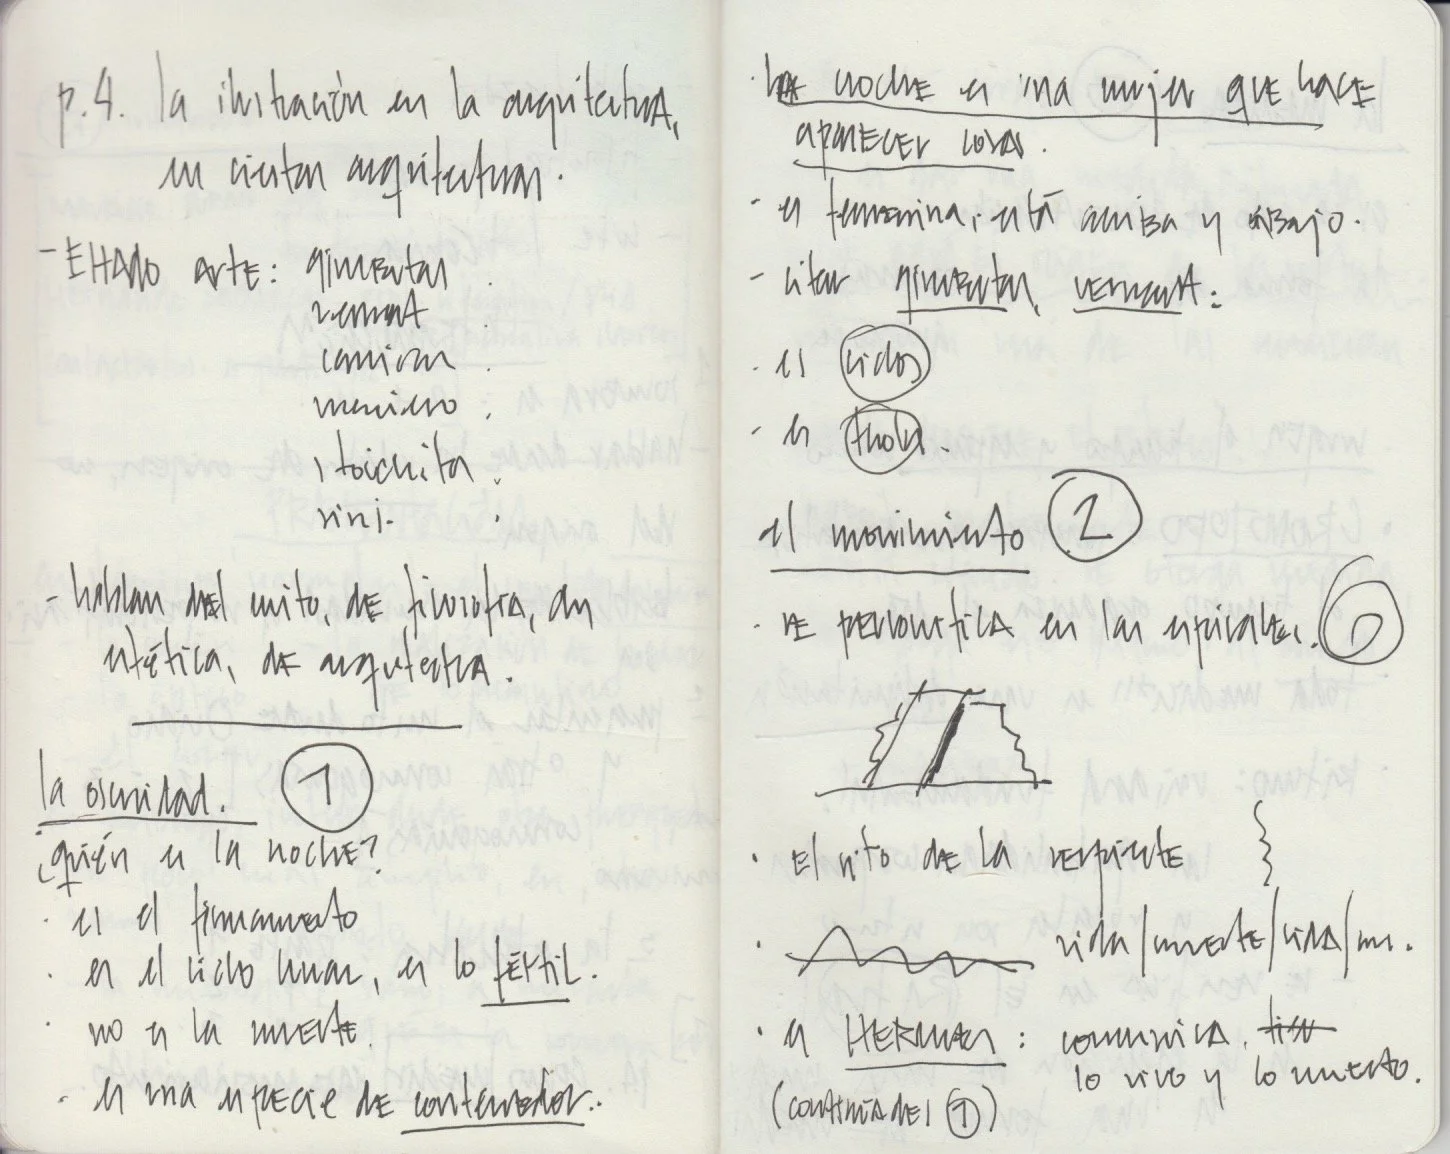 p.4. la ilustración en la arquitectura,
en ciertas arquitecturas.
- Estado arte: gimbutas
vernant
comiran
stoichita
- hablan del mito, de filosofía, an
estética, de arquitectura.
la oscuridad. 1
¿quién es la noche?
· es el firmamento
· es el ciclo lunar, es lo fértil.
· no es la muerte.
· es una especie de contenedor.
· La noche es una mujer que hace
aparecer cosas.
- es femenina, está arriba y abajo.
- citar gimbutas, vernant:
· es ciclos
- es
el movimiento 2
· se personifica en las espirales.
· El rito de la serpiente
· vida/muerte/vida/mu.
· es HERMES: comunica
lo vivo y lo muerto.
(continúa del 1)